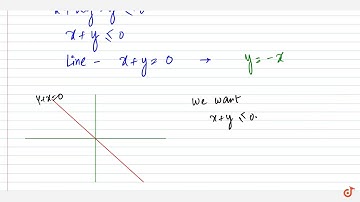 x+y ≤ 0
Line - x+y = 0 → y = -x
y+x≤0
We want
x+y ≤ 0.